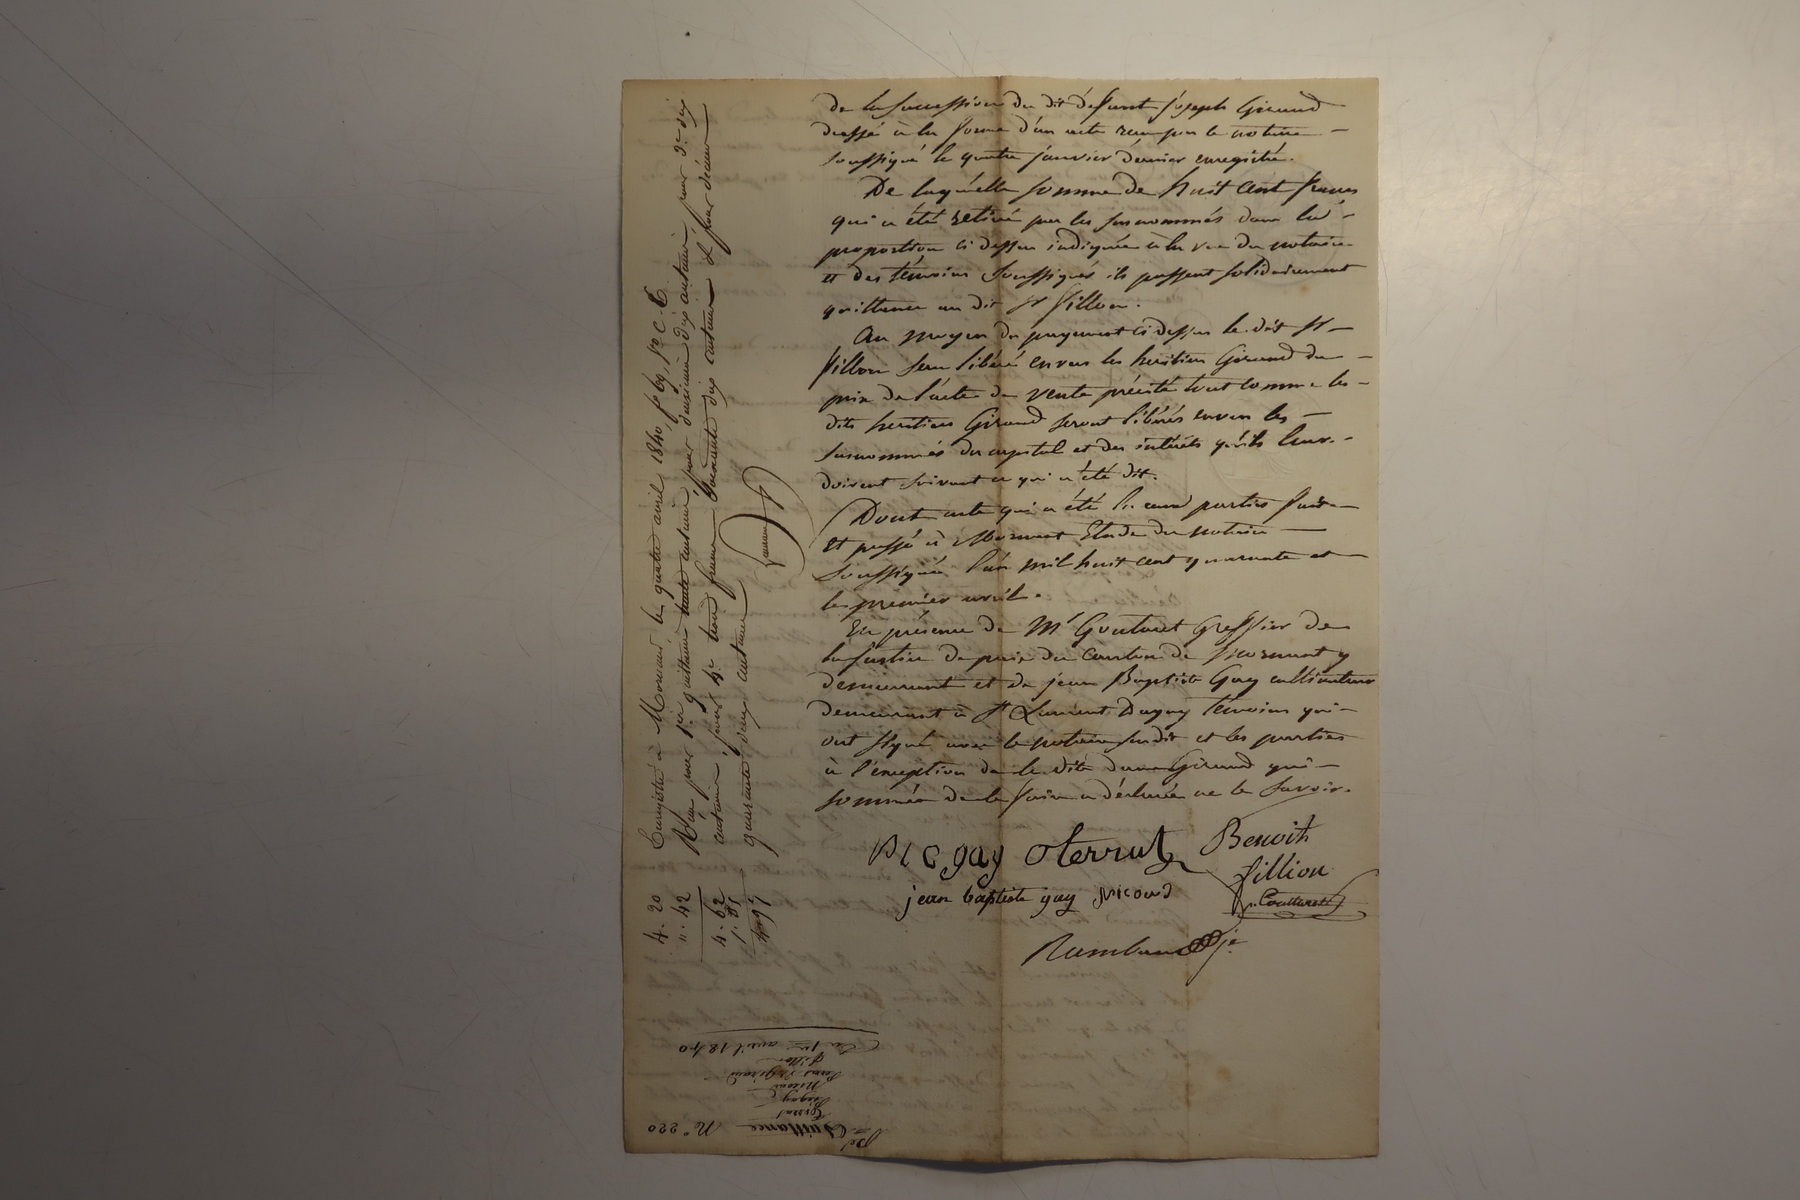 de la succession du dit défunt joseph Giraud
dressé à la forme d'un acte reçu par le notaire
soussigné le quatre janvier dernier enregistré.
De laquelle somme de huit cent francs
qui a été retiré par les susnommés dans la
proportion ci dessus indiquée à la vue du notaire
et des témoins soussignés ils passent solidairement
quittance au dit Sr fillion.
Au moyen du payement ci dessus le dit Sr
fillion sera libéré envers les héritiers Giraud du
prix de l'acte de vente précité tout comme les
dits héritiers Giraud seront libérés envers les
susnommés du capital et des intérêts qu'ils leur
doivent suivant ce qui a été dit.
Dont acte qui a été lu aux parties fait
et passé à Mornant Etude du notaire
soussigné l'an mil huit cent quarante et
le premier avril.
En présence de Mr Goutaret Greffier de
la justice de paix du canton de Mornant y
demeurant et de jean Baptiste Guy cultivateur
demeurant à St Laurent Dagny témoins qui
ont signé avec le notaire susdit et les parties
à l'exeption de la dite dame Giraud qui
sommée de le faire a déclaré ne le savoir.
Benoit
fillion
jean baptiste guy nicoud
Enregistré à Mornant le quatre avril 1840, fo 69, Ro c. 6
quarante deux centimes
4. 20
". 42
4. 62
Du 1er avril 1840
fillion
Quittance
No 220